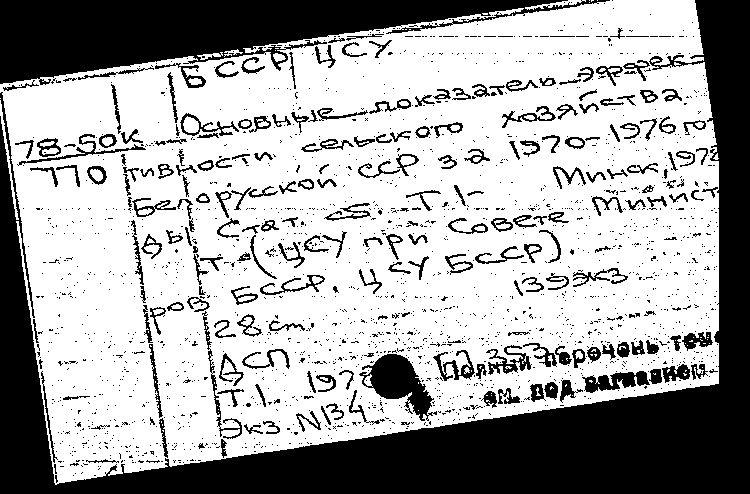 БССР ЦСУ.
78-50к
770
Основные показатели эффек-
тивности сельского хозяйства
Белорусской ССР за 1970-1976 го-
ды Стат. сб. Т.1- Минск, 1978
т. (ЦСУ при Совете Министров
БССР. ЦСУ БССР).
28 см. 139 экз
ДСП. [1] 353
Т.1. 1978
Экз. N134
Полный перечень томов
см. под заглавием